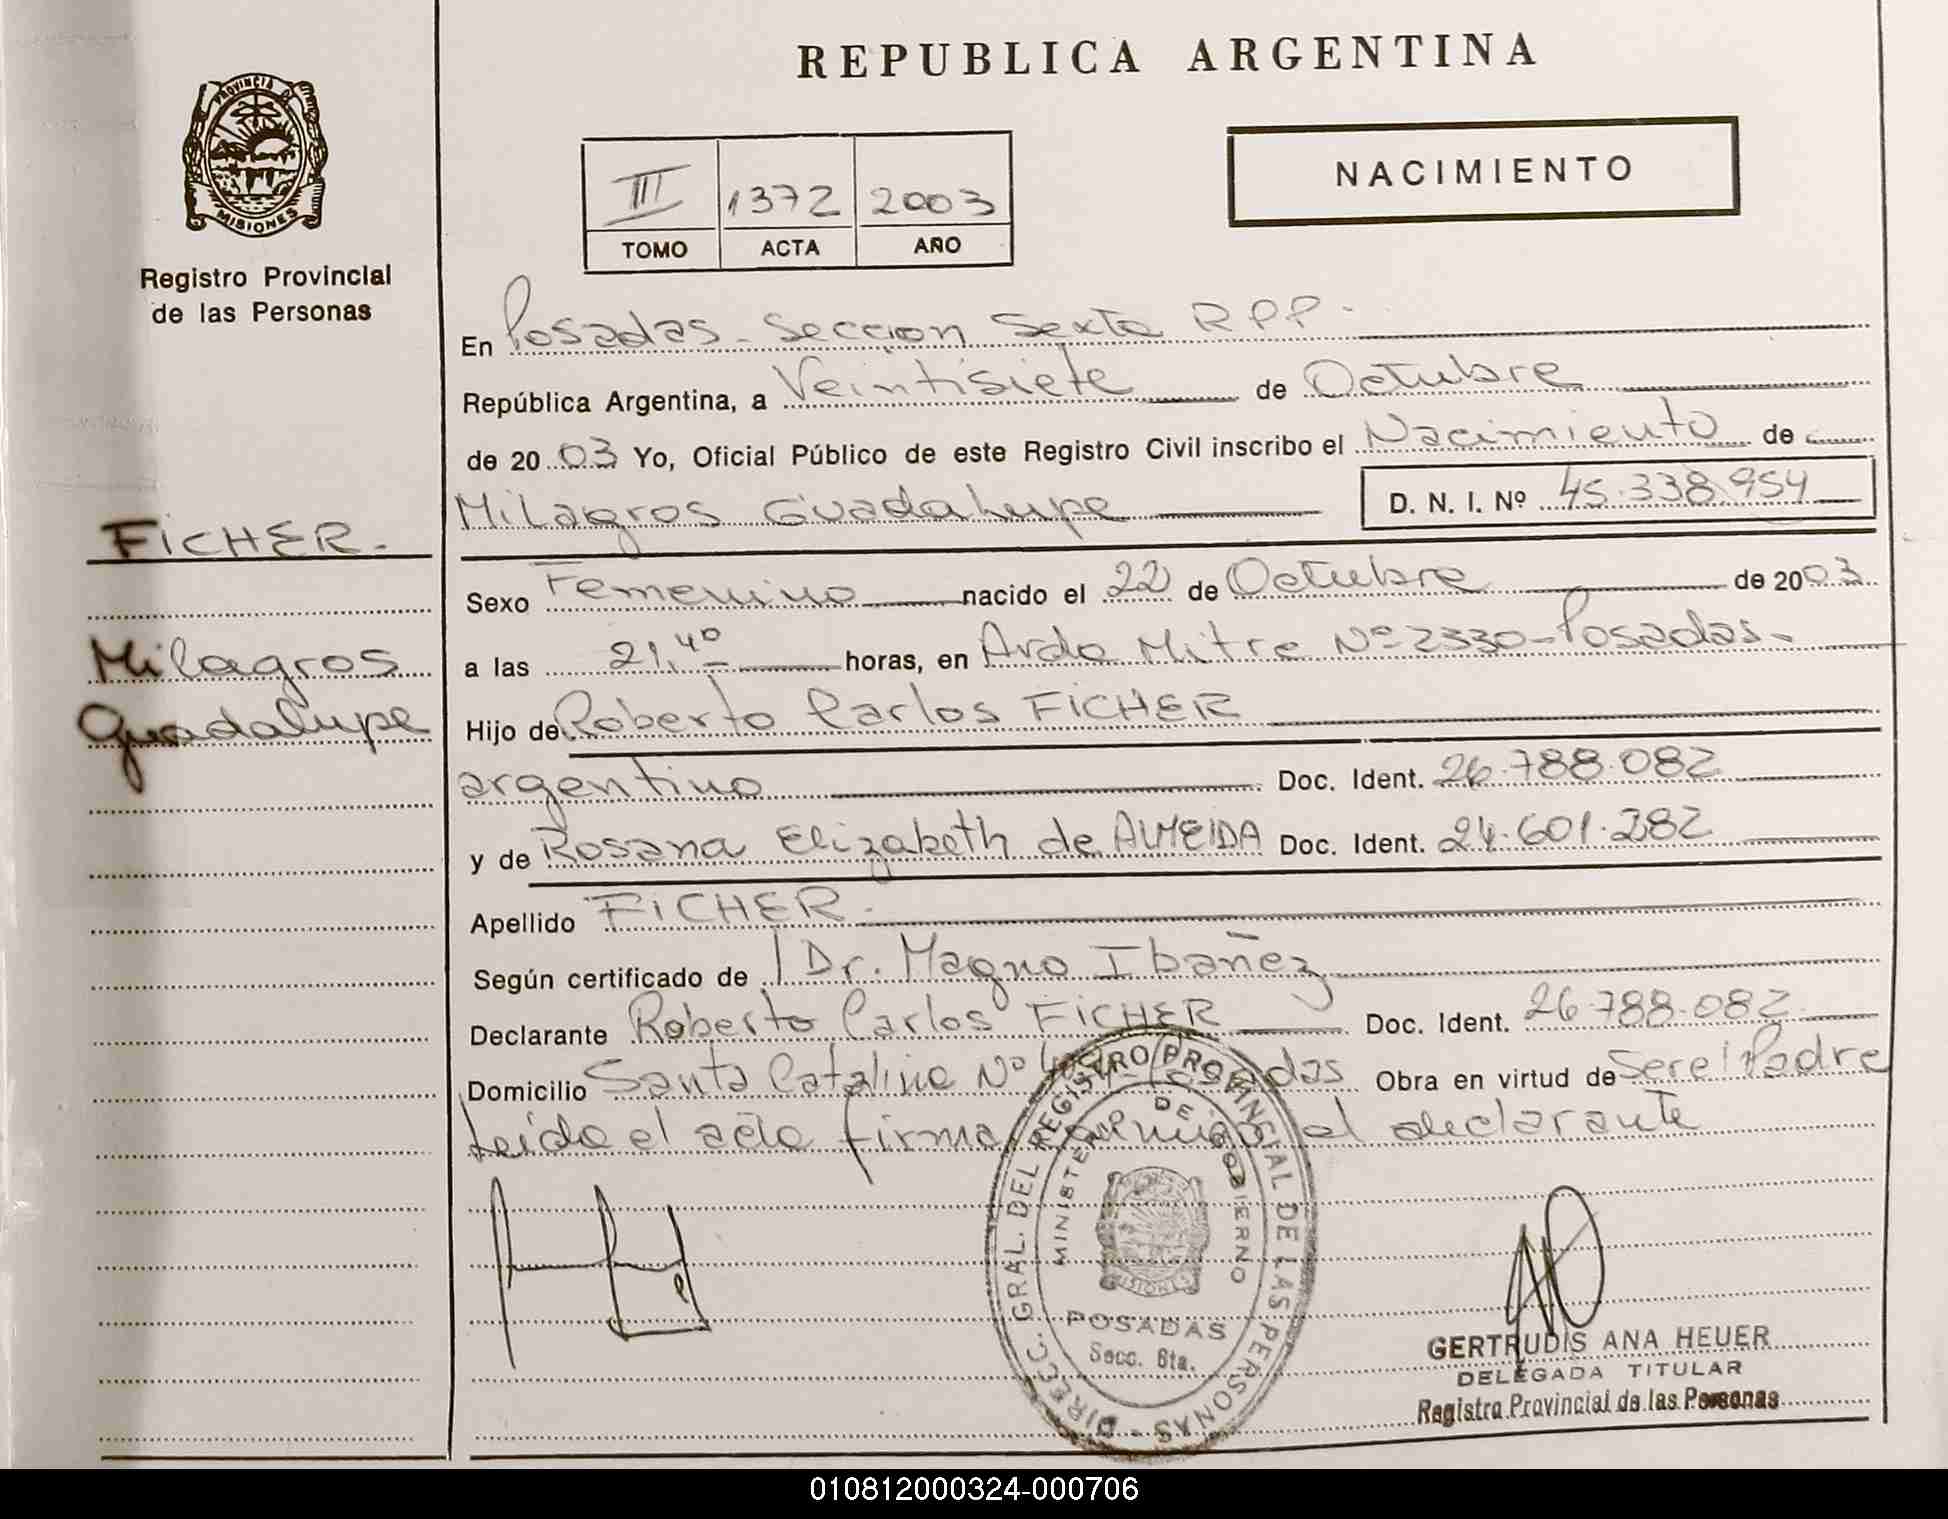 REPUBLICA ARGENTINA
PROVINCIA DE
MISIONES
Registro Provincial
de las Personas
III 1372 2003
TOMO ACTA AÑO
NACIMIENTO
En Posadas - Seccion Sexta R.P.P.-
República Argentina, a Veintisiete de Octubre
de 2003 Yo, Oficial Público de este Registro Civil inscribo el Nacimiento de
Milagros Guadalupe D. N. I. Nº 45.338.954
FiCHER.-
Milagros
Guadalupe
Sexo Femenino nacido el 22 de Octubre de 2003
a las 21,40 horas, en Avda Mitre Nº 2330 - Posadas -
Hijo de Roberto Carlos FiCHER
argentino Doc. Ident. 26.788.082
y de Rosana Elizabeth de ALMEIDA Doc. Ident. 24.601.282
Apellido FiCHER.-
Según certificado de Dr. Magno Ibañez
Declarante Roberto Carlos FiCHER Doc. Ident. 26.788.082
Domicilio Santa Catalina Nº Posadas Obra en virtud de Ser el Padre
Leida el acta firma conmigo el declarante
DIRECC. GRAL. DEL REGISTRO PROVINCIAL DE LAS PERSONAS -
MINISTERIO DE GOBIERNO
MISIONES
POSADAS
Secc. 6ta.
GERTRUDIS ANA HEUER
DELEGADA TITULAR
Registro Provincial de las Personas
010812000324-000706